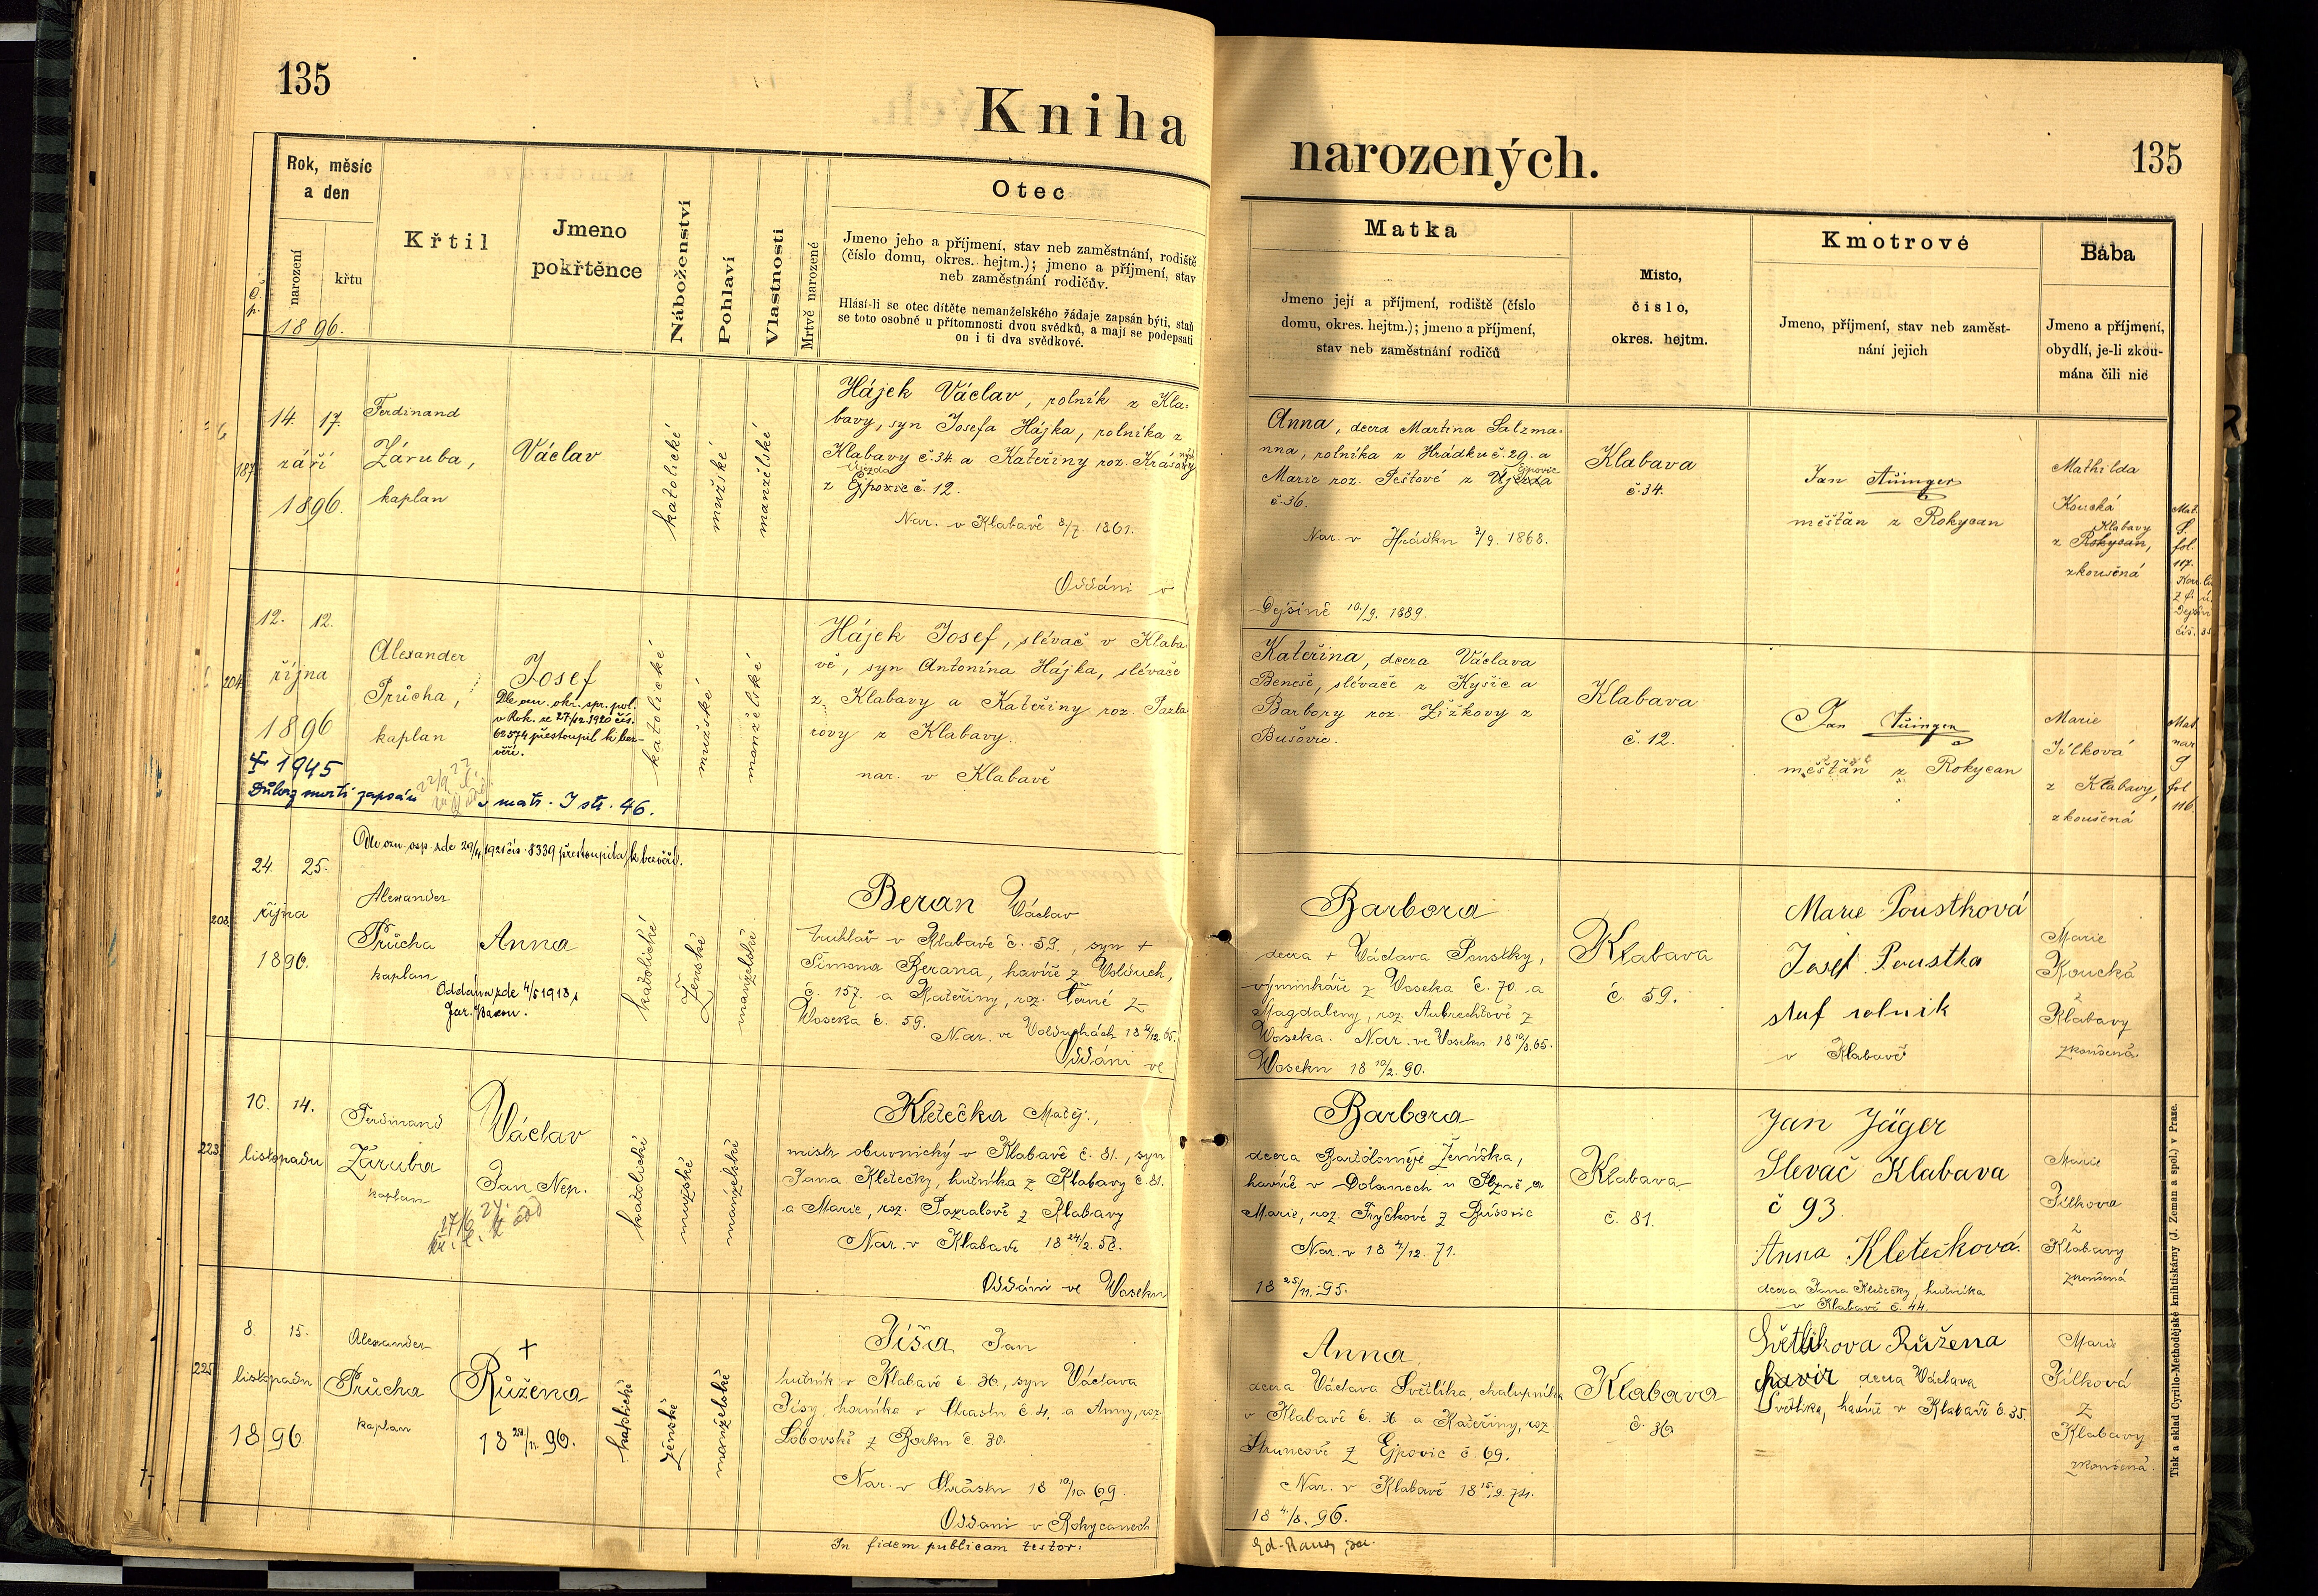 135
Kniha
narozených.
135
Rok, měsíc
a den
narození
křtu
1896.
Č. p.
Křtil
Jmeno
pokřtěnce
Náboženství
Pohlaví
Vlastnosti
Mrtvě narozené
Otec
Jmeno jeho a příjmení, stav neb zaměstnání, rodiště
(číslo domu, okres. hejtm.); jmeno a příjmení, stav
neb zaměstnání rodičův.
Hlásí-li se otec dítěte nemanželského žádaje zapsán býti, staň
se toto osobně u přítomnosti dvou svědků, a mají se podepsati
on i ti dva svědkové.
Matka
Jmeno její a příjmení, rodiště (číslo
domu, okres. hejtm.); jmeno a příjmení,
stav neb zaměstnání rodičů
Místo,
číslo,
okres. hejtm.
Kmotrové
Jmeno, příjmení, stav neb zaměst-
nání jejich
Bába
Jmeno a příjmení,
obydlí, je-li zkou-
mána čili nic
187.
14. 17.
září
1896.
Ferdinand
Záruba,
kaplan
Václav
katolické
mužské
manželské
Hájek Václav, rolník z Kla-
bavy, syn Josefa Hájka, rolníka z
Klabavy č. 34. a Kateřiny roz. Krásový
Újezda
z Ejpovic č. 12.
Nar. v Klabavě 8/7. 1861.
Oddáni v
Anna, dcera Martina Salzma-
nna, rolníka z Hrádku č. 29. a
Ejpovic
Marie roz. Peštové z Újezda
č. 36.
Nar. v Hrádku 3/9. 1868.
Dyšině 10./9. 1889.
Klabava
č. 34.
Jan
měšťan z Rokycan
Mathilda
Koucká
Klabavy
z Rokycan,
zkoušená
Mat.
fol.
117.
204.
12. 12.
října
1896
Alexander
Průcha,
kaplan
Josef
Dle ozn. okr. spr. pol.
v Rok. ze 27/12.1920 čís.
62574 přestoupil k bez-
věří.
† 1945
Důkaz smrti zapsán v matr. I str. 46.
katolické
mužské
manželské
Hájek Josef, slévač v Klaba-
vě, syn Antonína Hájka, slévače
z Klabavy a Kateřiny roz. Pazla-
rovy z Klabavy.
nar. v Klabavě
Kateřina, dcera Václava
Beneše, slévače z Kyšic a
Barbory roz. Žižkovy z
Bušovic.
Klabava
č. 12.
Jan
měšťan z Rokycan
Marie
Jílková
z Klabavy,
zkoušená
Mat.
nar
9
fol
116.
208.
Dle ozn. osp. zde 29/4 1921 čís. 8339 přestoupila k bezvěří.
24. 25.
října
1896.
Alexander
Průcha
kaplan
Anna
Oddána zde 4/5 1918 s
katolické
Ženské
manželské
Beran Václav
truhlář v Klabavě č. 59., syn +
Šimona Berana, havíře z Volduch,
č. 157. a Kateřiny, roz. Černé z
Woseka č. 59. Nar. ve Volduchách 18 4/12. 65.
Oddáni ve
Barbora
dcera + Václava Poustky,
výminkáře z Woseka č. 70. a
Magdaleny, roz. Aubrechtové z
Woseka. Nar. ve Woseku 18 10/8. 65.
Woseku 18 10/2. 90.
Klabava
č. 59.
Marie Poustková
Josef Poustka
rolnik
v Klabavě
Marie
Koucká
z
Klabavy
zkoušená.
223.
10. 14.
listopadu
Ferdinand
Záruba
kaplan
Václav
Jan Nep.
katolické
mužské
manželské
Kletečka Matěj,
mistr obuvnický v Klabavě č. 81., syn
Jana Kletečky, hutníka z Klabavy č. 81.
a Marie, roz. Pazalové z Klabavy
Nar. v Klabavě 18 24/2. 58.
Oddáni ve Woseku
Barbora
dcera Bartoloměje Ženíška,
havíře v Dolanech u Plzně, a
Marie, roz. Fryčkové z Bušovic
Nar. v 18 4/12. 71.
18 25/11. 95.
Klabava
č. 81.
Jan Jäger
Slevač Klabava
č 93.
Anna Kletečková.
dcera Jana Kletečky, hutníka
v Klabavě č. 44.
Marie
Jílkova
z
Klabavy
zkoušená
225.
8. 15.
listopadu
1896.
Alexander
Průcha
kaplan
+
Růžena
18 20/11. 96.
katolické
ženské
manželské
Jíša Jan
hutník v Klabavě č. 36., syn Václava
Jíšy, horníka v Chrástu č. 4. a Anny, roz.
Lobovské z Borku č. 30.
Nar. v Chrástu 18 10/10 69.
Oddáni v Rokycanech
In fidem publicam testor:
Anna
dcera Václava Světlíka, chalupníka
v Klabavě č. 36 a Kateřiny, roz
Struncové z Ejpovic č. 69.
Nar. v Klabavě 18 15./9. 74.
18 4./8. 96.
Klabava
č. 36
Světlikova Růžena
havir dcera Václava
Světlíka, havíře v Klabavě č. 35.
Marie
Jílková
z
Klabavy
zkoušená.
Tisk a sklad Cyrillo-Methodějské knihtiskárny (J. Zeman a spol.) v Praze.